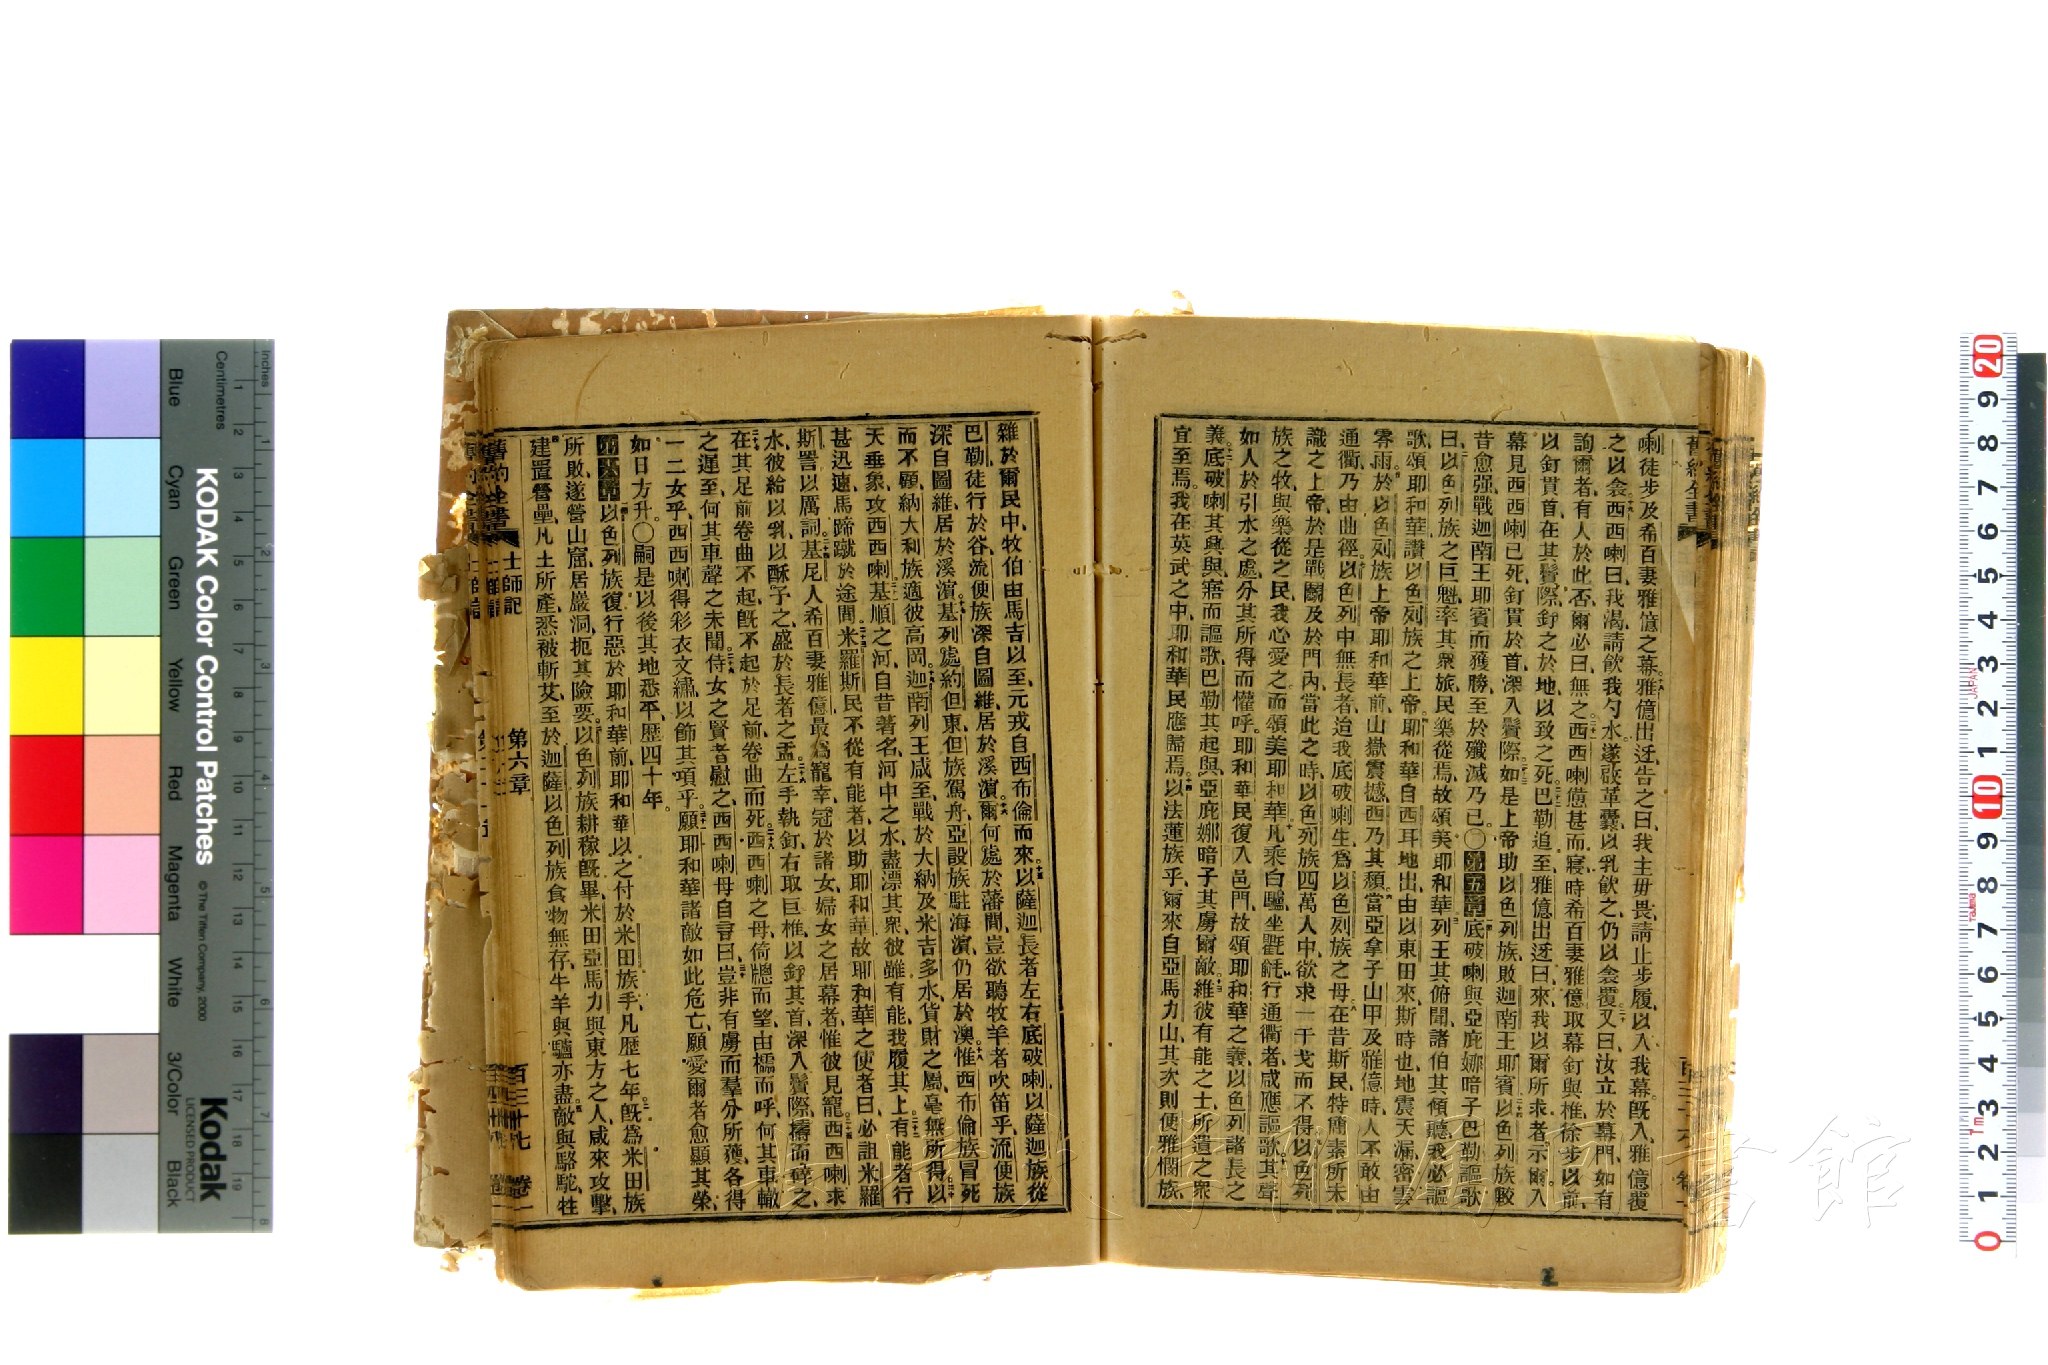 喇徒步及希百妻雅億之幕、雅億出迓、告之曰、我主毋畏、請止步履、以入我幕、旣入、雅億覆
之以衾、西西喇曰、我渴、請飲我勺水、遂啟革囊、以乳飲之、仍以衾覆、又曰、汝立於幕門、如有
詢爾者、有人於此否、爾必曰、無之、西西喇憊甚而寢、時希百妻雅億取幕釘與椎、徐步以前、
以釘貫首、在其鬢際、釘之於地、以致之死、巴勒追至、雅億出迓曰、來、我以爾所求者示爾、入
幕、見西西喇已死、釘貫於首、深入鬢際、如是上帝助以色列族、敗迦南王耶賓、以色列族較
昔愈强、戰迦南王耶賓而獲勝、至於殲滅乃已、〇第五章底破喇與亞庇娜暗子巴勒謳歌
曰、以色列族之巨魁、率其衆旅、民樂從焉、故頌美耶和華、列王其俯聞、諸伯其傾聽、我必謳
歌、頌耶和華、讚以色列族之上帝、耶和華自西耳地出、由以東田來、斯時也、地震天漏、密雲
零雨、於以色列族上帝耶和華前、山嶽震撼、西乃其頹、當亞拿子山甲及雅億時、人不敢由
通衢、乃由曲徑、以色列中無長者、迨我底破喇生、爲以色列族之母、在昔斯民、特簡素所未
識之上帝、於是戰鬭及於門內、當此之時、以色列族四萬人中、欲求一干戈而不得、以色列
族之牧、與樂從之民、我心愛之、而頌美耶和華、凡乘白驢、坐氍毹、行通衢者、咸應謳歌、其聲
如人於引水之處、分其所得而懽呼、耶和華民復入邑門、故頌耶和華之義、以色列諸長之
義、底破喇其興與、寤而謳歌、巴勒其起與、亞庇娜暗子其虜爾敵、維彼有能之士、所遺之衆
宜至焉、我在英武之中、耶和華民應歸焉、以法蓮族乎、爾來自亞馬力山、其次則便雅憫族、
雜於爾民中、牧伯由馬吉以至、元戎自西布倫而來、以薩迦長者左右底破喇、以薩迦族從
巴勒徒行於谷、流便族深自圖維、居於溪濱、爾何處於藩間、豈欲聽牧羊者吹笛乎、流便族
深自圖維、居於溪濱、基列處約但東、但族駕舟、亞設族駐海濱、仍居於澳、惟西布倫族冒死
而不顧、納大利族適彼高岡、迦南列王咸至、戰於大納及米吉多水、貨財之屬、毫無所得、以
天垂象、攻西西喇、基順之河、自昔著名、河中之水、盡漂其衆、彼雖有能、我履其上、有能者行
甚迅速、馬蹄蹴於途間、米羅斯民不從有能者、以助耶和華、故耶和華之使者曰、必詛米羅
斯、詈以厲詞、基尼人希百妻雅億、最爲寵幸、冠於諸女、婦女之居幕者、惟彼見寵、西西喇求
水、彼給以乳、以酥予之、盛於長者之盂、左手執釘、右取巨椎、以釘其首、深入鬢際、擣而碎之、
在其足前、卷曲不起、旣不起於足前、卷曲而死、西西喇之母倚牕而望、由櫺而呼、何其車轍
之遲至、何其車聲之未聞、侍女之賢者慰之、西西喇母自言曰、豈非有虜而羣分所獲、各得
一二女乎、西西喇得彩衣文繡、以飾其項乎、願耶和華諸敵如此危亡、願愛爾者愈顯其榮、
如日方升、〇嗣是以後、其地悉平、歷四十年。
第六章以色列族復行惡於耶和華前、耶和華以之付於米田族手、凡歷七年、旣爲米田族
所敗、遂營山窟、居嚴洞、扼其險要、以色列族耕稼旣畢、米田亞馬力與東方之人、咸來攻擊、
建置營壘、凡土所產、悉被斬艾、至於迦薩、以色列族食物無存、牛羊與驢亦盡、敵與駱駝牲
舊約全書 士師記 第六章 百三十七 卷二
KODAK Color Control Patches
© The Tiffen Company, 2000
Kodak
LICENSED PRODUCT
Inches
Centimetres
Blue
Cyan
Green
Yellow
Red
Magenta
White
3/Color
Black
JAPAN